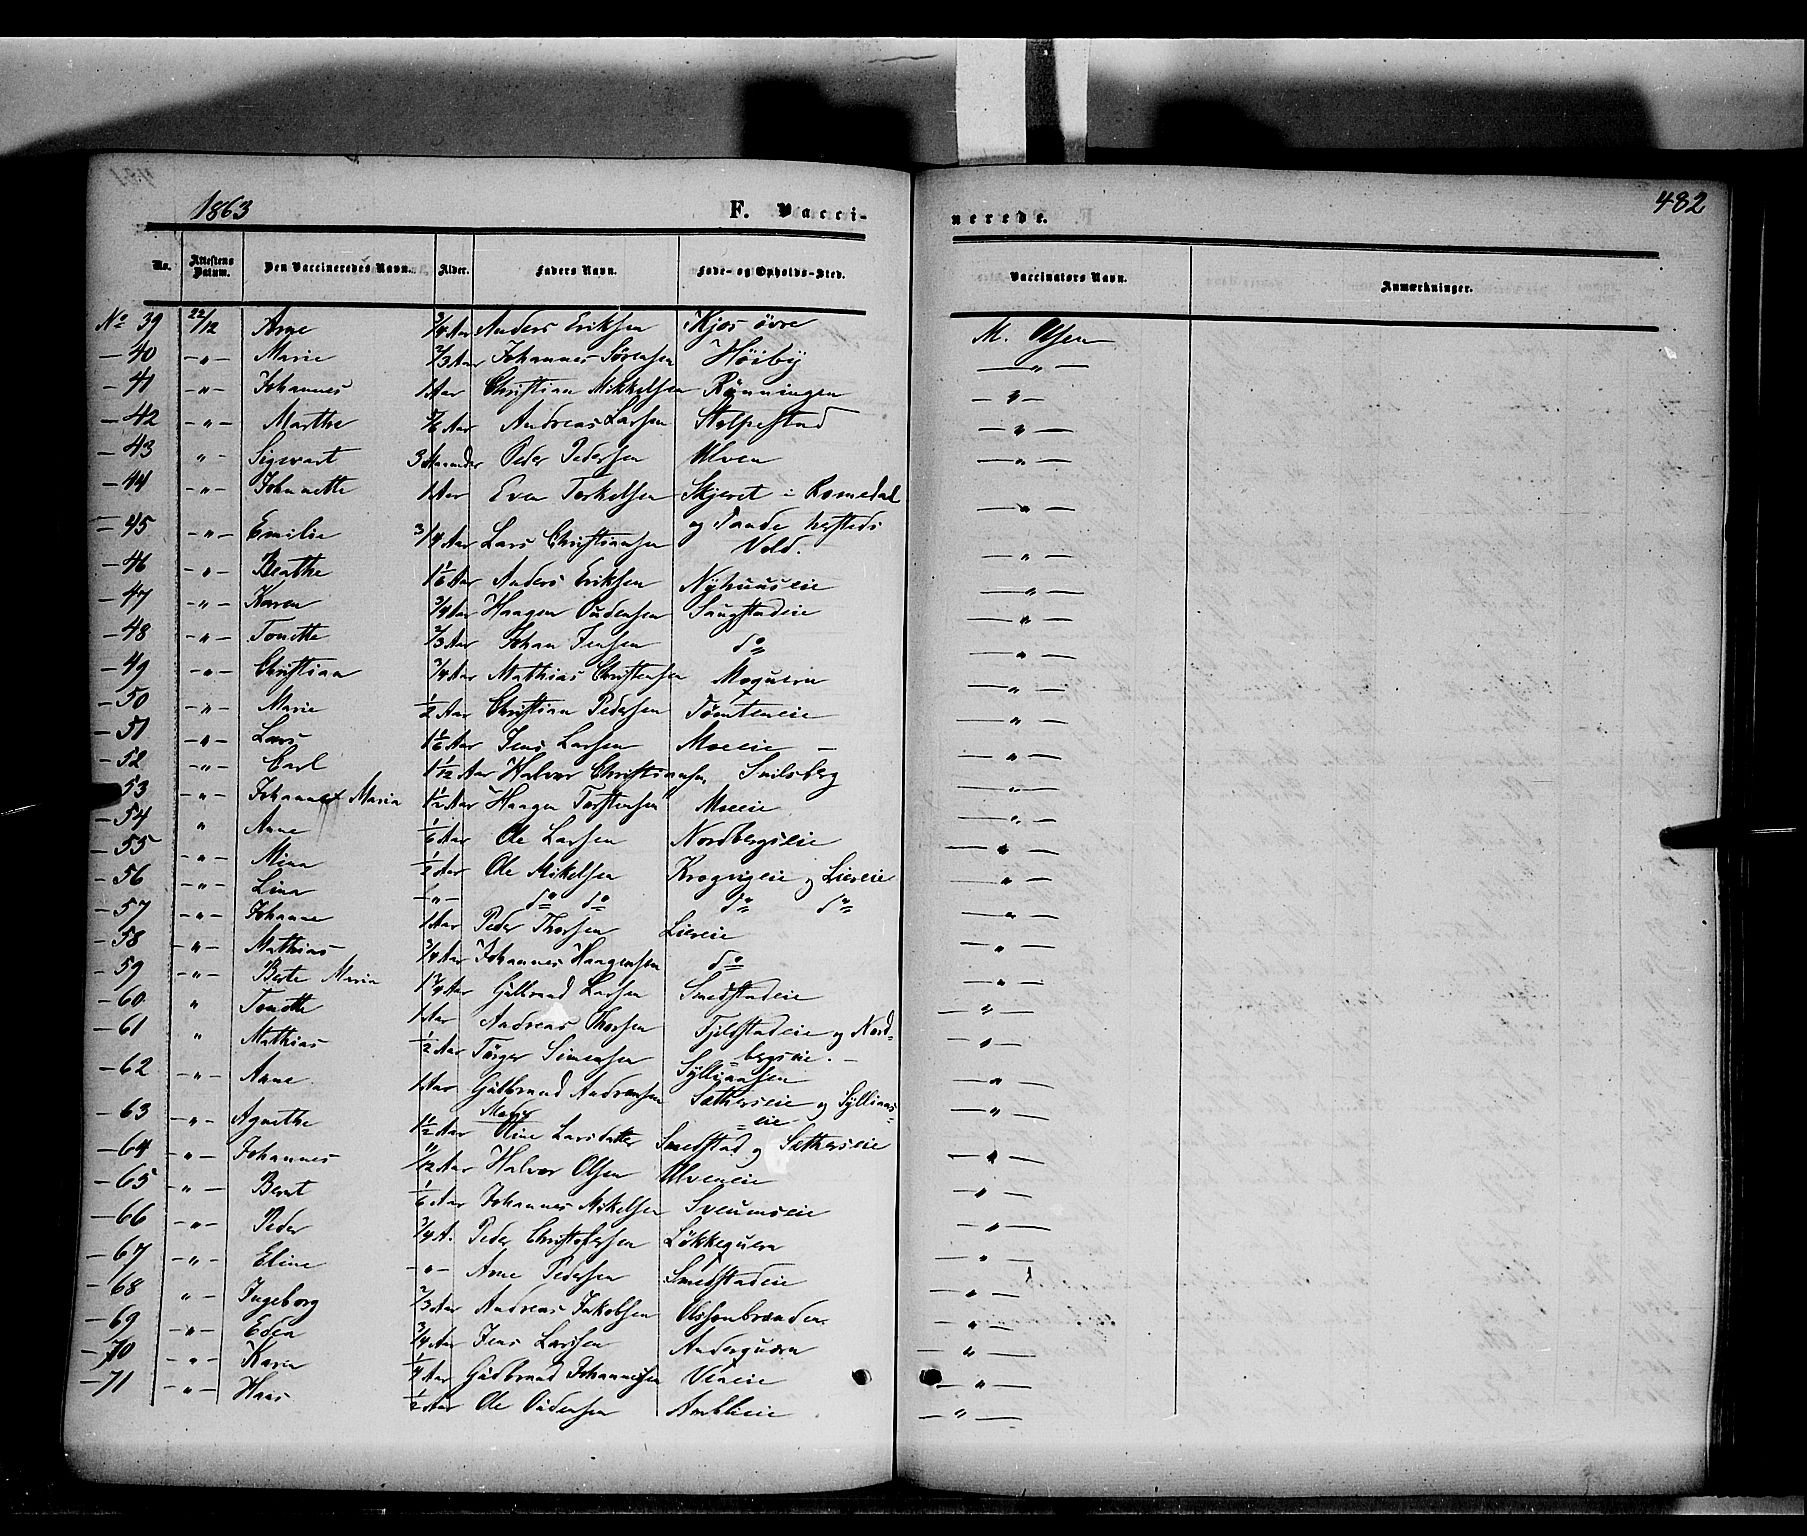 1863 F. Vacci- nerede. 482
No. Attestens Datum. Den Vaccineredes Navn. Alder. Faders Navn. Føde- og Opholds-Sted. Vaccinators Navn. Anmærkninger.
No 39 22/12 Arne 3/4 Aar Anders Eriksen Kjos øvre M. Olsen
— 40 -"- Marie 2/3 Aar Johannes Sørensen Høiby —"—
— 41 -"- Johannes 1 Aar Christian Mikkelsen Rønningen —"—
— 42 -"- Marthe Aar Andreas Larsen Stolpestad —"—
— 43 " Sigwart 3 Maaneder Peder Pedersen Ulven —"—
— 44 -"- Johanette 1 Aar Even Torkelsen Skjeret i Romedal —"—
og Tande hersteds
— 45 -"- Emilie 3/4 Aar Lars Christiansen Vold. —"—
— 46 -"- Beathe 1 1/6 Aar Anders Eriksen Nyhuuseie —"—
— 47 -"- Karen 3/4 Aar Haagen Oudensen Saugstadeie —"—
— 48 -"- Tonette 2/3 Aar Johan Jensen do —"—
— 49 -"- Christian 3/4 Aar Mathias Christensen Moqvern —"—
— 50 -"- Marie 1/2 Aar Christian Pedersen Tømteneie —"—
— 51 -"- Lars 1 1/6 Aar Jens Larsen Moeeie — —"—
— 52 -"- Carl 1 1/12 Aar Halvor Christiansen Snilsberg —"—
— 53 -"- Johanne Maria 1 1/2 Aar Haagen Torstensen Moeeie —"—
— 54 " Anne 1/6 Aar Ole Larsen Nordbergseie —"—
— 55 -"- Mina 1/2 Aar Ole Mikelsen Krogvigeie og Liereie —"—
— 56 -"- Lina -"- do do do do —"—
— 57 -"- Johanne 1 Aar Peder Thorsen Liereie —"—
— 58 -"- Mathias 3/4 Aar Johannes Haagensen do —"—
— 59 -"- Berte Maria Aar Gulbrand Larsen Smedstadeie —"—
— 60 " Tonette 1 Aar Andreas Thorsen Fjelstadeie og Nord- —"—
bergseie. —
— 61 " Mathias 1/2 Aar Torger Simensen Sylliaasen —"—
— 62 -"- Anne 1 Aar Gulbrand Andreasen Sætherseie og Sylliaas- —"—
eie
— 63 -"- Agnethe 1 1/2 Aar Moder Oline Larsdatter Smedstad og Sætherseie —"—
— 64 -"- Johannes 11/12 Aar Halvor Olsen Ulveneie —"—
— 65 -"- Bernt 1/6 Aar Johannes Mikelsen Sveumseie —"—
— 66 -"- Peder 3/4 A. Peder Christofersen Løkkeqvern —"—
— 67 -"- Eline -"- Arne Pedersen Smedstadeie —"—
— 68 -"- Ingeborg 2/3 Aar Andreas Jakobsen —"—
— 69 -"- Eden 3/4 Aar Jens Larsen Anderqværn —"—
— 70 -"- Karen 1/4 Aar Gudbrand Johannesen Vieneie —"—
— 71 -"- Haas 1/2 Aar Ole Oudensen Amblieie —"—